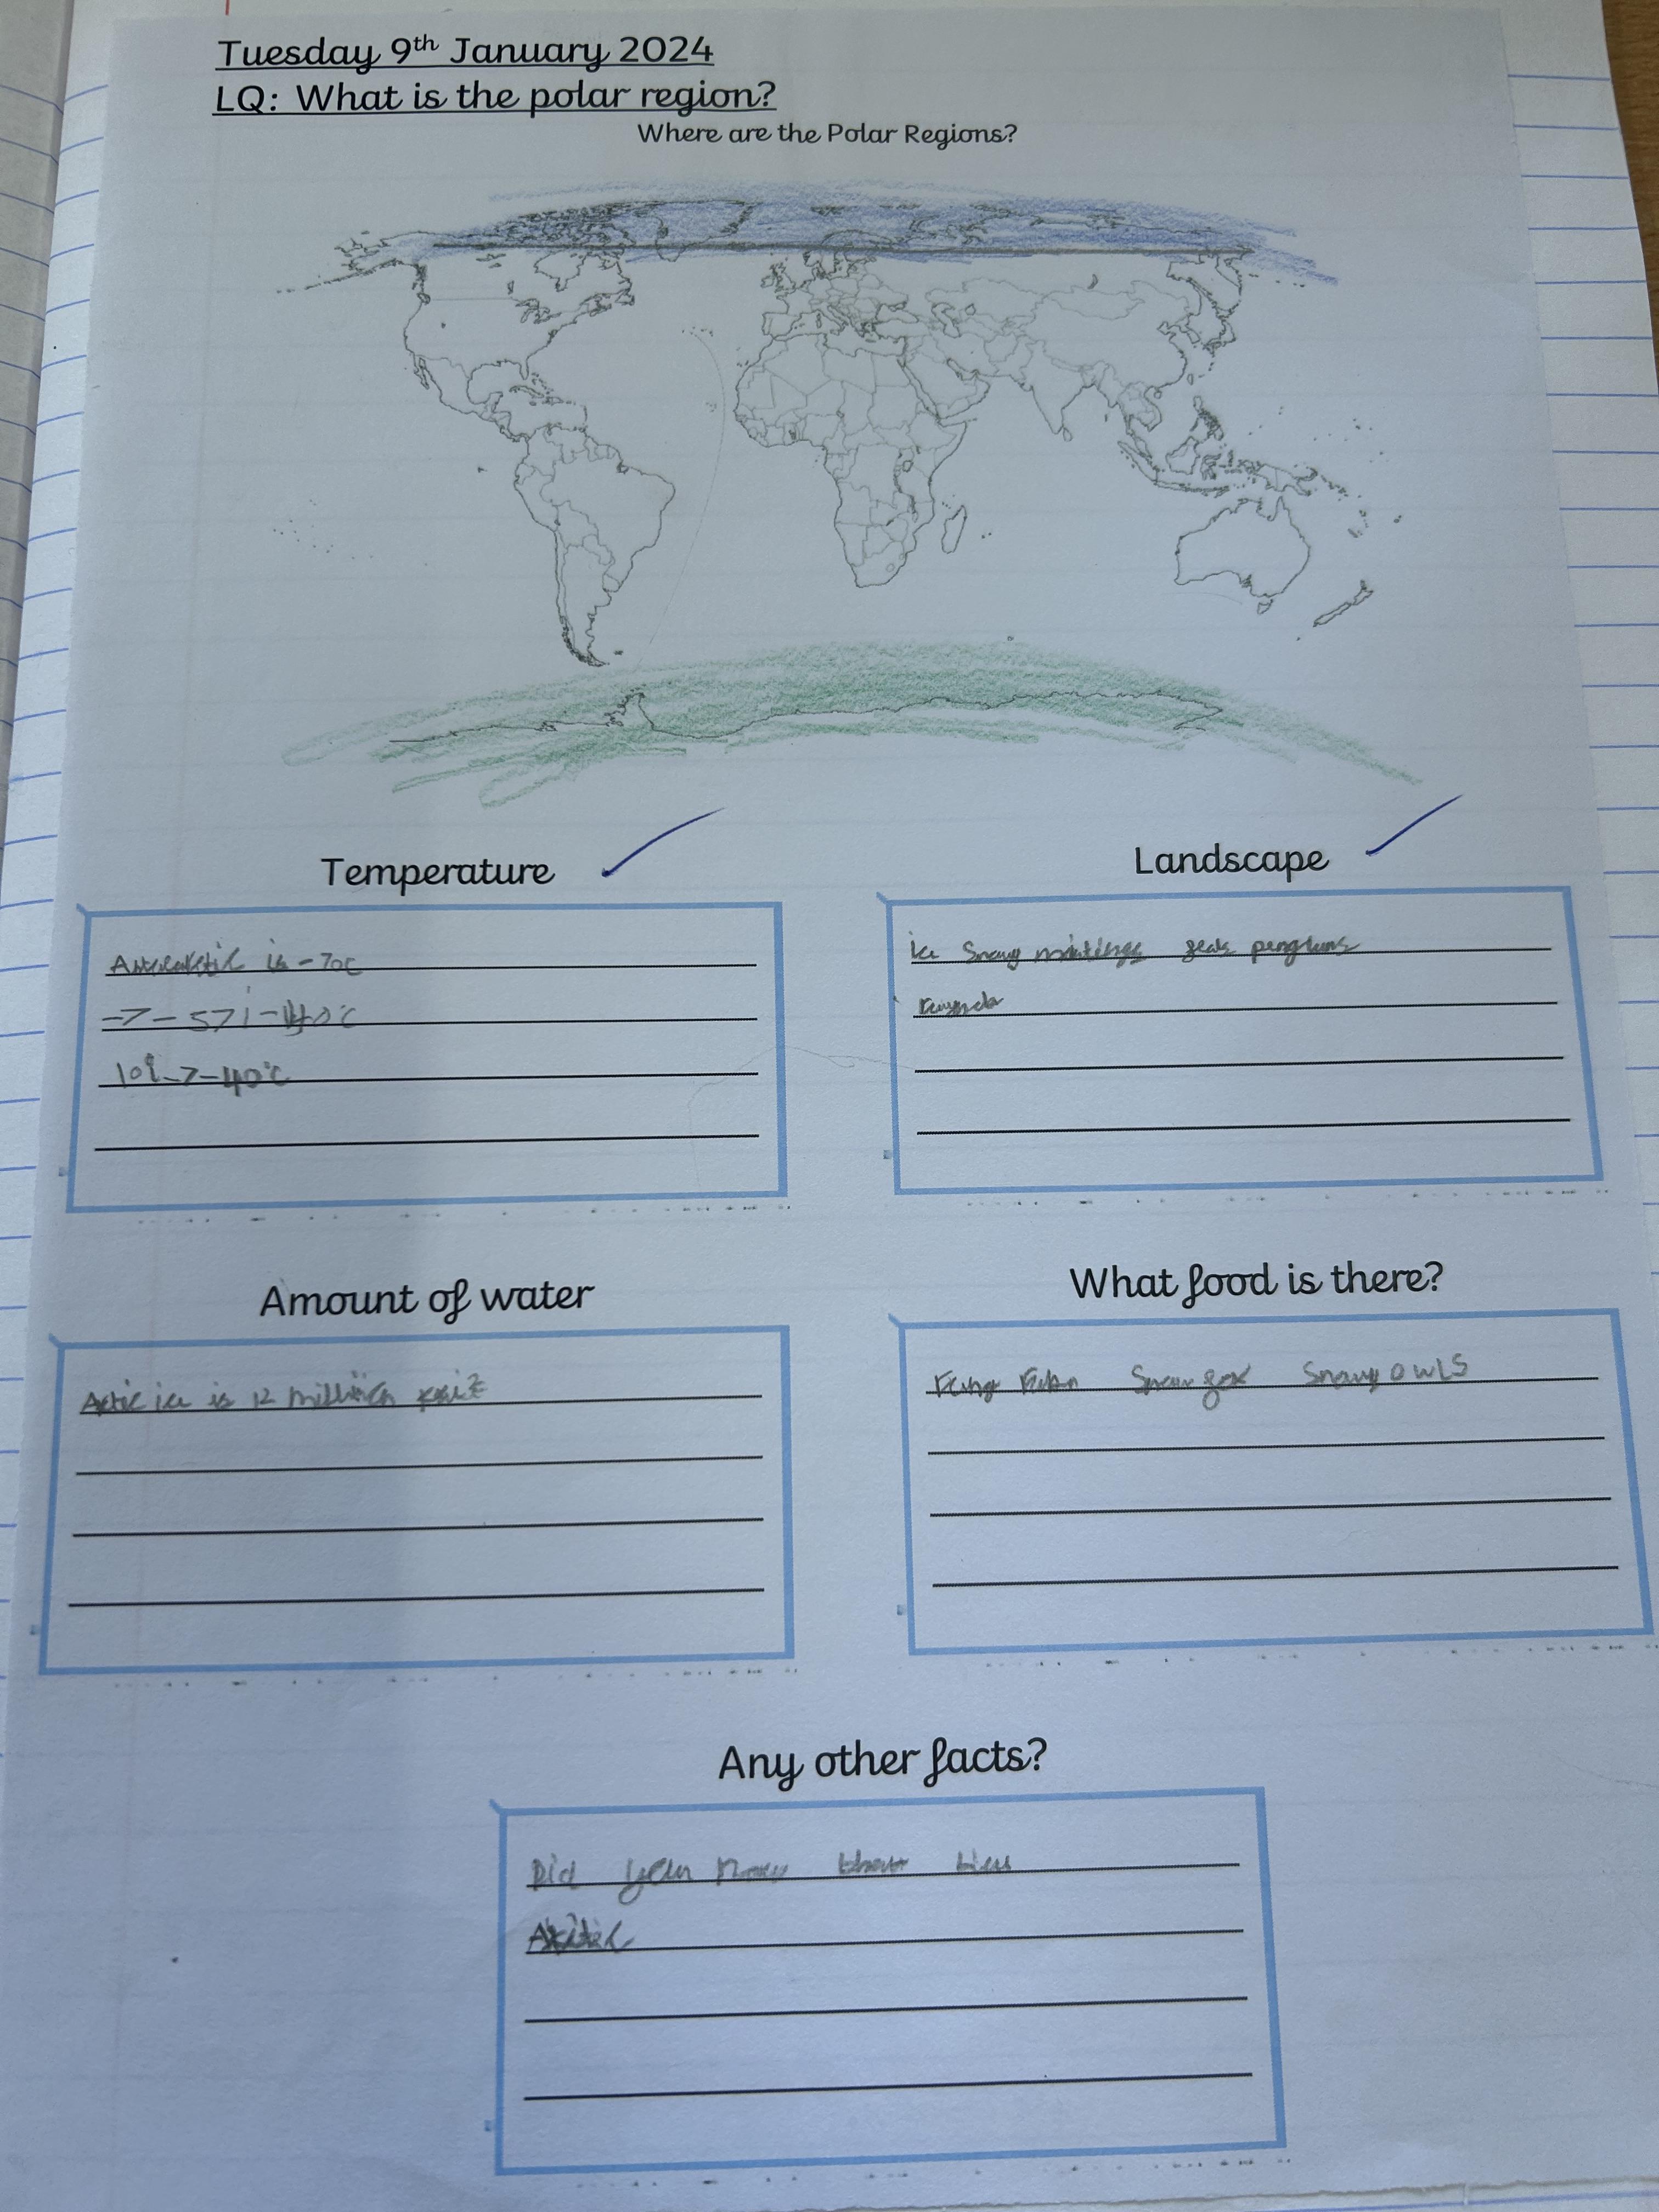 Tuesday 9th January 2024
LQ: What is the polar region?
Where are the Polar Regions?
Temperature
is -70c
10°c -> -40°c
Landscape
ice Snowy seals penguins
Amount of water
Artic ice is 12 million
What food is there?
Snow fox Snowy owls
Any other facts?
Did you